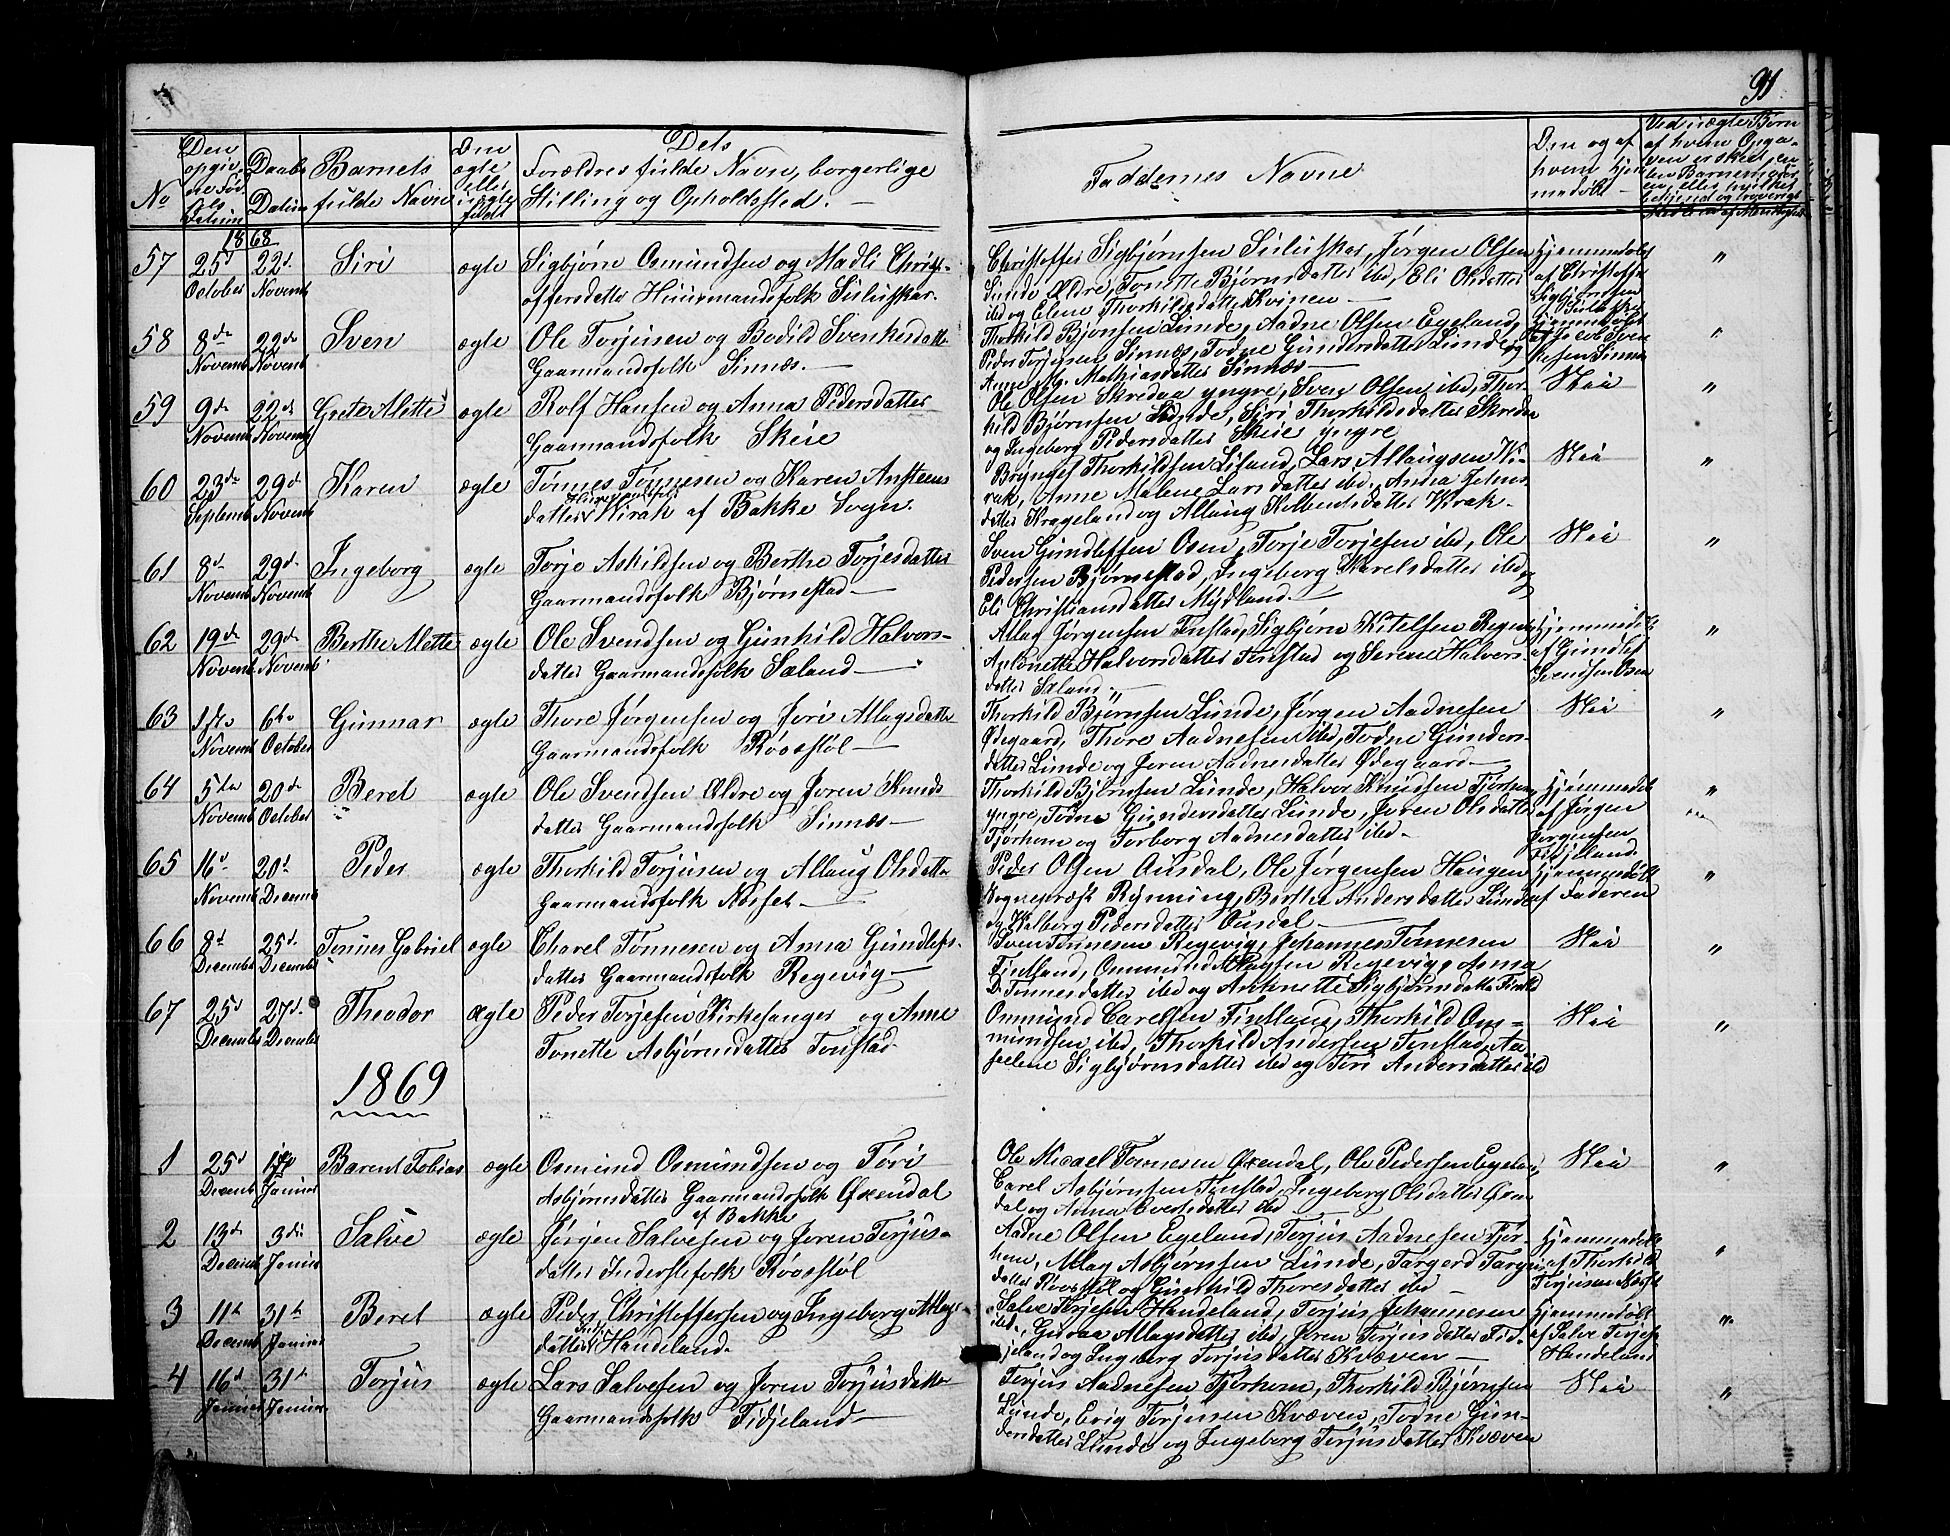 91
No
Den opgivne Fødsels Datum
Daabs Datum
Barnets fulde Navn
Om ægte eller uægte født
Dets
Forældres fulde Navn, borgerlige
Stilling og Opholdssted. —
Faddernes Navne
Om og af hvem hjemmedøbt —
Ved uægte Børn
1868
57 25d October 22d Novemb Siri ægte Sigbjørn Osmundsen og Madli Christ-
offersdatter Huusmandsfolk Sirluskar.
Christoffer Sigbjørnsen Sirluskar, Jørgen Olsen
Lunde Ældre, Tonette Bjørnsdatter ibd, Eli Olsdatter
ibd og Elene Thorkildsdatter Kvinen —
Hjemmedøbt af Christoffer Sigbjørnsen "
58 8de Novemb 22de Novemb Sven ægte Ole Torjusen og Bodild Svenkesdatter
Gaarmandsfolk Sinnæs. —
Thorkild Bjørnsen Lunde, Aadne Olsen Egeland,
Peder Torjusen Sinnæs, Todne Gundersdatter Lunde og
Anne M. Mathiasdatter Sinnæs —
"
59 9de Novemb 22de Novemb Grete Mette ægte Rolf Hansen og Anna Pedersdatter
Gaarmandsfolk Skeie
Ole Olsen Skredaa yngre, Sven Olsen ibd, Thor-
kild Bjørnsen Lunde, Siri Thorkildsdatter Skreda
og Ingeborg Pedersdatter Skeie yngre
Nei "
60 23de Septemb 29de Novemb Karen ægte Tønnes Tønnesen og Karen Ansteens
datter Kirak af Bakke Sogn.
Thorkildsen Liland, Lars Allaugsen Ki-
rak, Anne Malene Larsdatter ibd, Anna
datter Krageland og Allaug datter Kirak.
Nei "
61 8d Novemb 29de Novemb Ingeborg ægte Torje Askildsen og Berthe Torjesdatter
Gaarmandsfolk Bjørnestad —
Sven Gundlefsen Osen, Torje Torjesen ibd, Ole
Pedersen Bjørnestad, Ingeborg Karelsdatter ibd og
Eli Christiansdatter Mydland. —
Nei "
62 19de Novemb 29de Novemb Berthe Mette ægte Ole Svendsen og Gunhild Halvors-
datter Gaarmandsfolk Sæland —
Allag Jørgensen Tonstad, Sigbjørn Ketelsen Regev
Antonette Halvorsdatter Tonstad og Serene Halvors-
datter Sæland —
Hjemmedøbt af Gundlef Svendsen Osen "
63 Novemb 6te October Gunnar ægte Thore Jørgensen og Jori Allagsdatter
Gaarmandsfolk Røosstøl —
Thorkild Bjørnsen Lunde, Jørgen Aadnesen
Ødegaard, Thore Aadnesen ibd, Todne Gunders-
datter Lunde og Joren Aadnesdatter Ødegaard —
Nei "
64 5te Novemb 20de October Beret ægte Ole Svendsen Ældre og Joren Knuds
datter Gaarmandsfolk Sinnæs —
Thorkild Bjørnsen Lunde, Halvor Knudsen Tjorhom
yngre, Todne Gundersdatter Lunde, Joren Olsdatter
Tjørhom og Torborg Aadnesdatter ibd. —
Hjemmedøbt af Jørgen Jørgensen Fidjeland. "
65 16d Novemb 20d Decemb Peder ægte Thorkild Torjusen og Allaug Olsdatter
Gaarmandsfolk Næsset —
Peder Olsen Ousdal, Ole Jørgensen Haugen
Sognepræst Rynning, Berthe Andersdatter Lunde
og Valborg Pedersdatter Ousdal —
Hjemmedøbt af Faderen "
66 8d Decemb 25d Decemb Tønnes Gabriel ægte Charel Tønnesen og Anna Gundlefs-
datter Gaarmandsfolk Regevig —
Sven Tønnesen Regevig, Johannes Tønnesen
Fintland, Ommund Regevig, Anna
D. Tønnesdatter ibd og Antonette Sigbjørnsdatter
Nei "
67 25d Decembr 27d Decembr Theodor ægte Peder Torjesen Kirkesanger og Anne
Tonette Asbjørnsdatter Tonstad
Ommund Carelsen Fintland, Thorkild Om-
mundsen ibd, Thorkild Andersen Tonstad,
Sigbjørnsdatter ibd og Tori Andersdatter ibd
Nei "
1869
1 25d Decemb Januar Barent Tobias ægte Osmund Osmundsen og Tori
Asbjørnsdatter Gaarmandsfolk Øxendal
af Bakke
Ole Micael Tønnesen Øxendal, Ole Pedersen Egeland,
Carel Asbjørnsen Tonstad, Ingeborg Olsdatter Øxen-
dal og Anna Evertsdatter ibd —
Nei "
2 13de Decemb 3die Januar Salve ægte Jørgen Salvesen og Joren Torjus-
datter Inderstefolk Røosstøl
Aadne Olsen Egeland, Torjus Aadnesen Tjør-
hom, Allag Asbjørnsen Lunde, Targerd
datter Røosstøl og Gunhild Thoresdatter ibd —
Hjemmedøbt af Thorkild Torjusen Næsset "
3 11te Decemb 31te Januar Beret ægte Peder Christoffersen og Ingeborg Allags-
datter Handeland.
Salve Torjesen Handeland, Torjus Johannesen
ibd, Guroa Allagsdatter ibd, Joren Torjusdatter Fid-
jeland og Ingeborg Torjusdatter Kvæven —
Hjemmedøbt af Salve Torjesen Handeland "
4 16d Januar 31te Januar Torjus ægte Lars Salvesen og Joren Torjusdatter
Gaarmandsfolk Fidjeland —
Torjus Aadnesen Tjorhom, Thorkild Bjørnsen
Lunde, Torjusen Kvæven, Todne Gun-
dersdatter Lunde og Ingeborg Torjusdatter Kvæven
Nei "